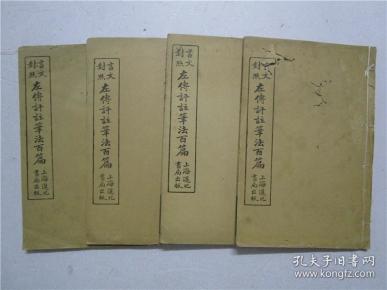 言文
對照
左傳評註筆法百篇
上海進化
書局出版
言文
對照
左傳評註筆法百篇
上海進化
書局出版
言文
對照
左傳評註筆法百篇
上海進化
書局出版
言文
對照
左傳評註筆法百篇
上海進化
書局出版
孔夫子旧书网